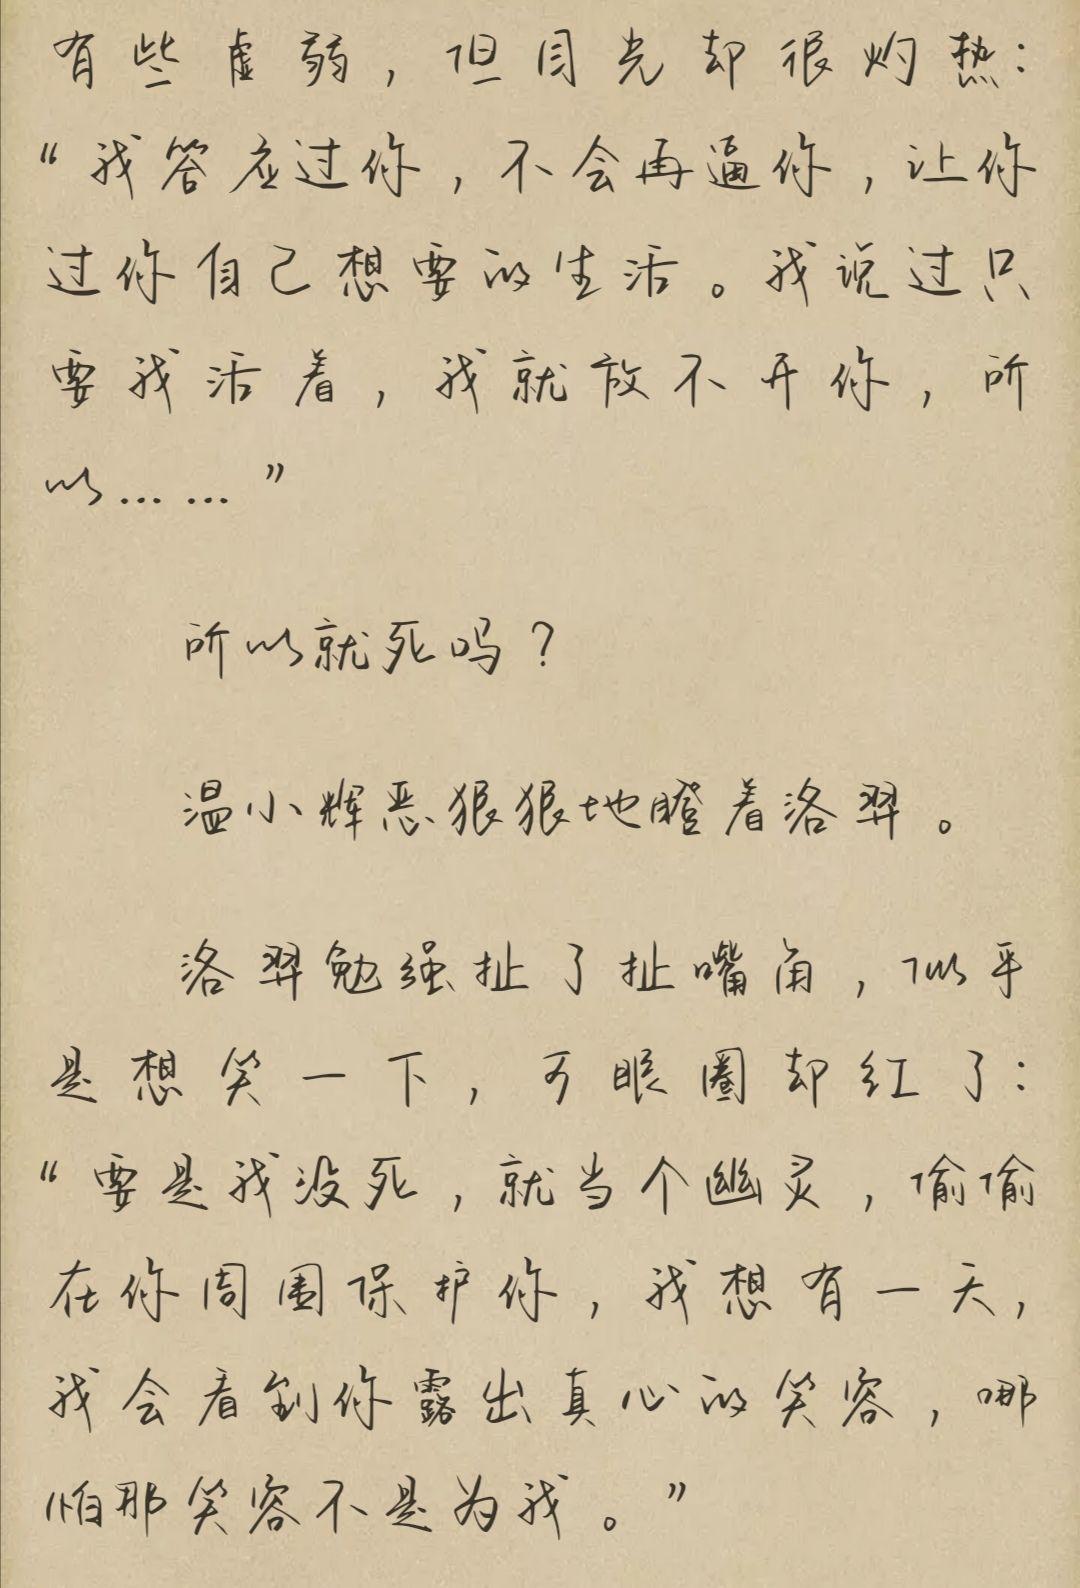 有些虚弱，但目光却很灼热：
“我答应过你，不会再逼你，让你
过你自己想要的生活。我说过只
要我活着，我就放不开你，所
以……”
所以就死吗？
温小辉恶狠狠地瞪着洛羿。
洛羿勉强扯了扯嘴角，似乎
是想笑一下，可眼圈却红了：
“要是我没死，就当个幽灵，偷偷
在你周围保护你，我想有一天，
我会看到你露出真心的笑容，哪
怕那笑容不是为我。”